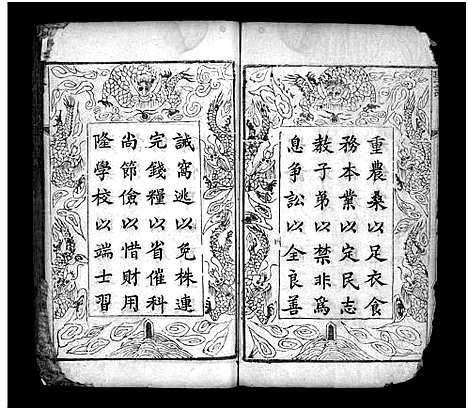 重農桑以足衣食
務本業以定民志
教子弟以禁非為
息爭訟以全良善
誡窩逃以免株連
完錢糧以省催科
尚節儉以惜財用
隆學校以端士習